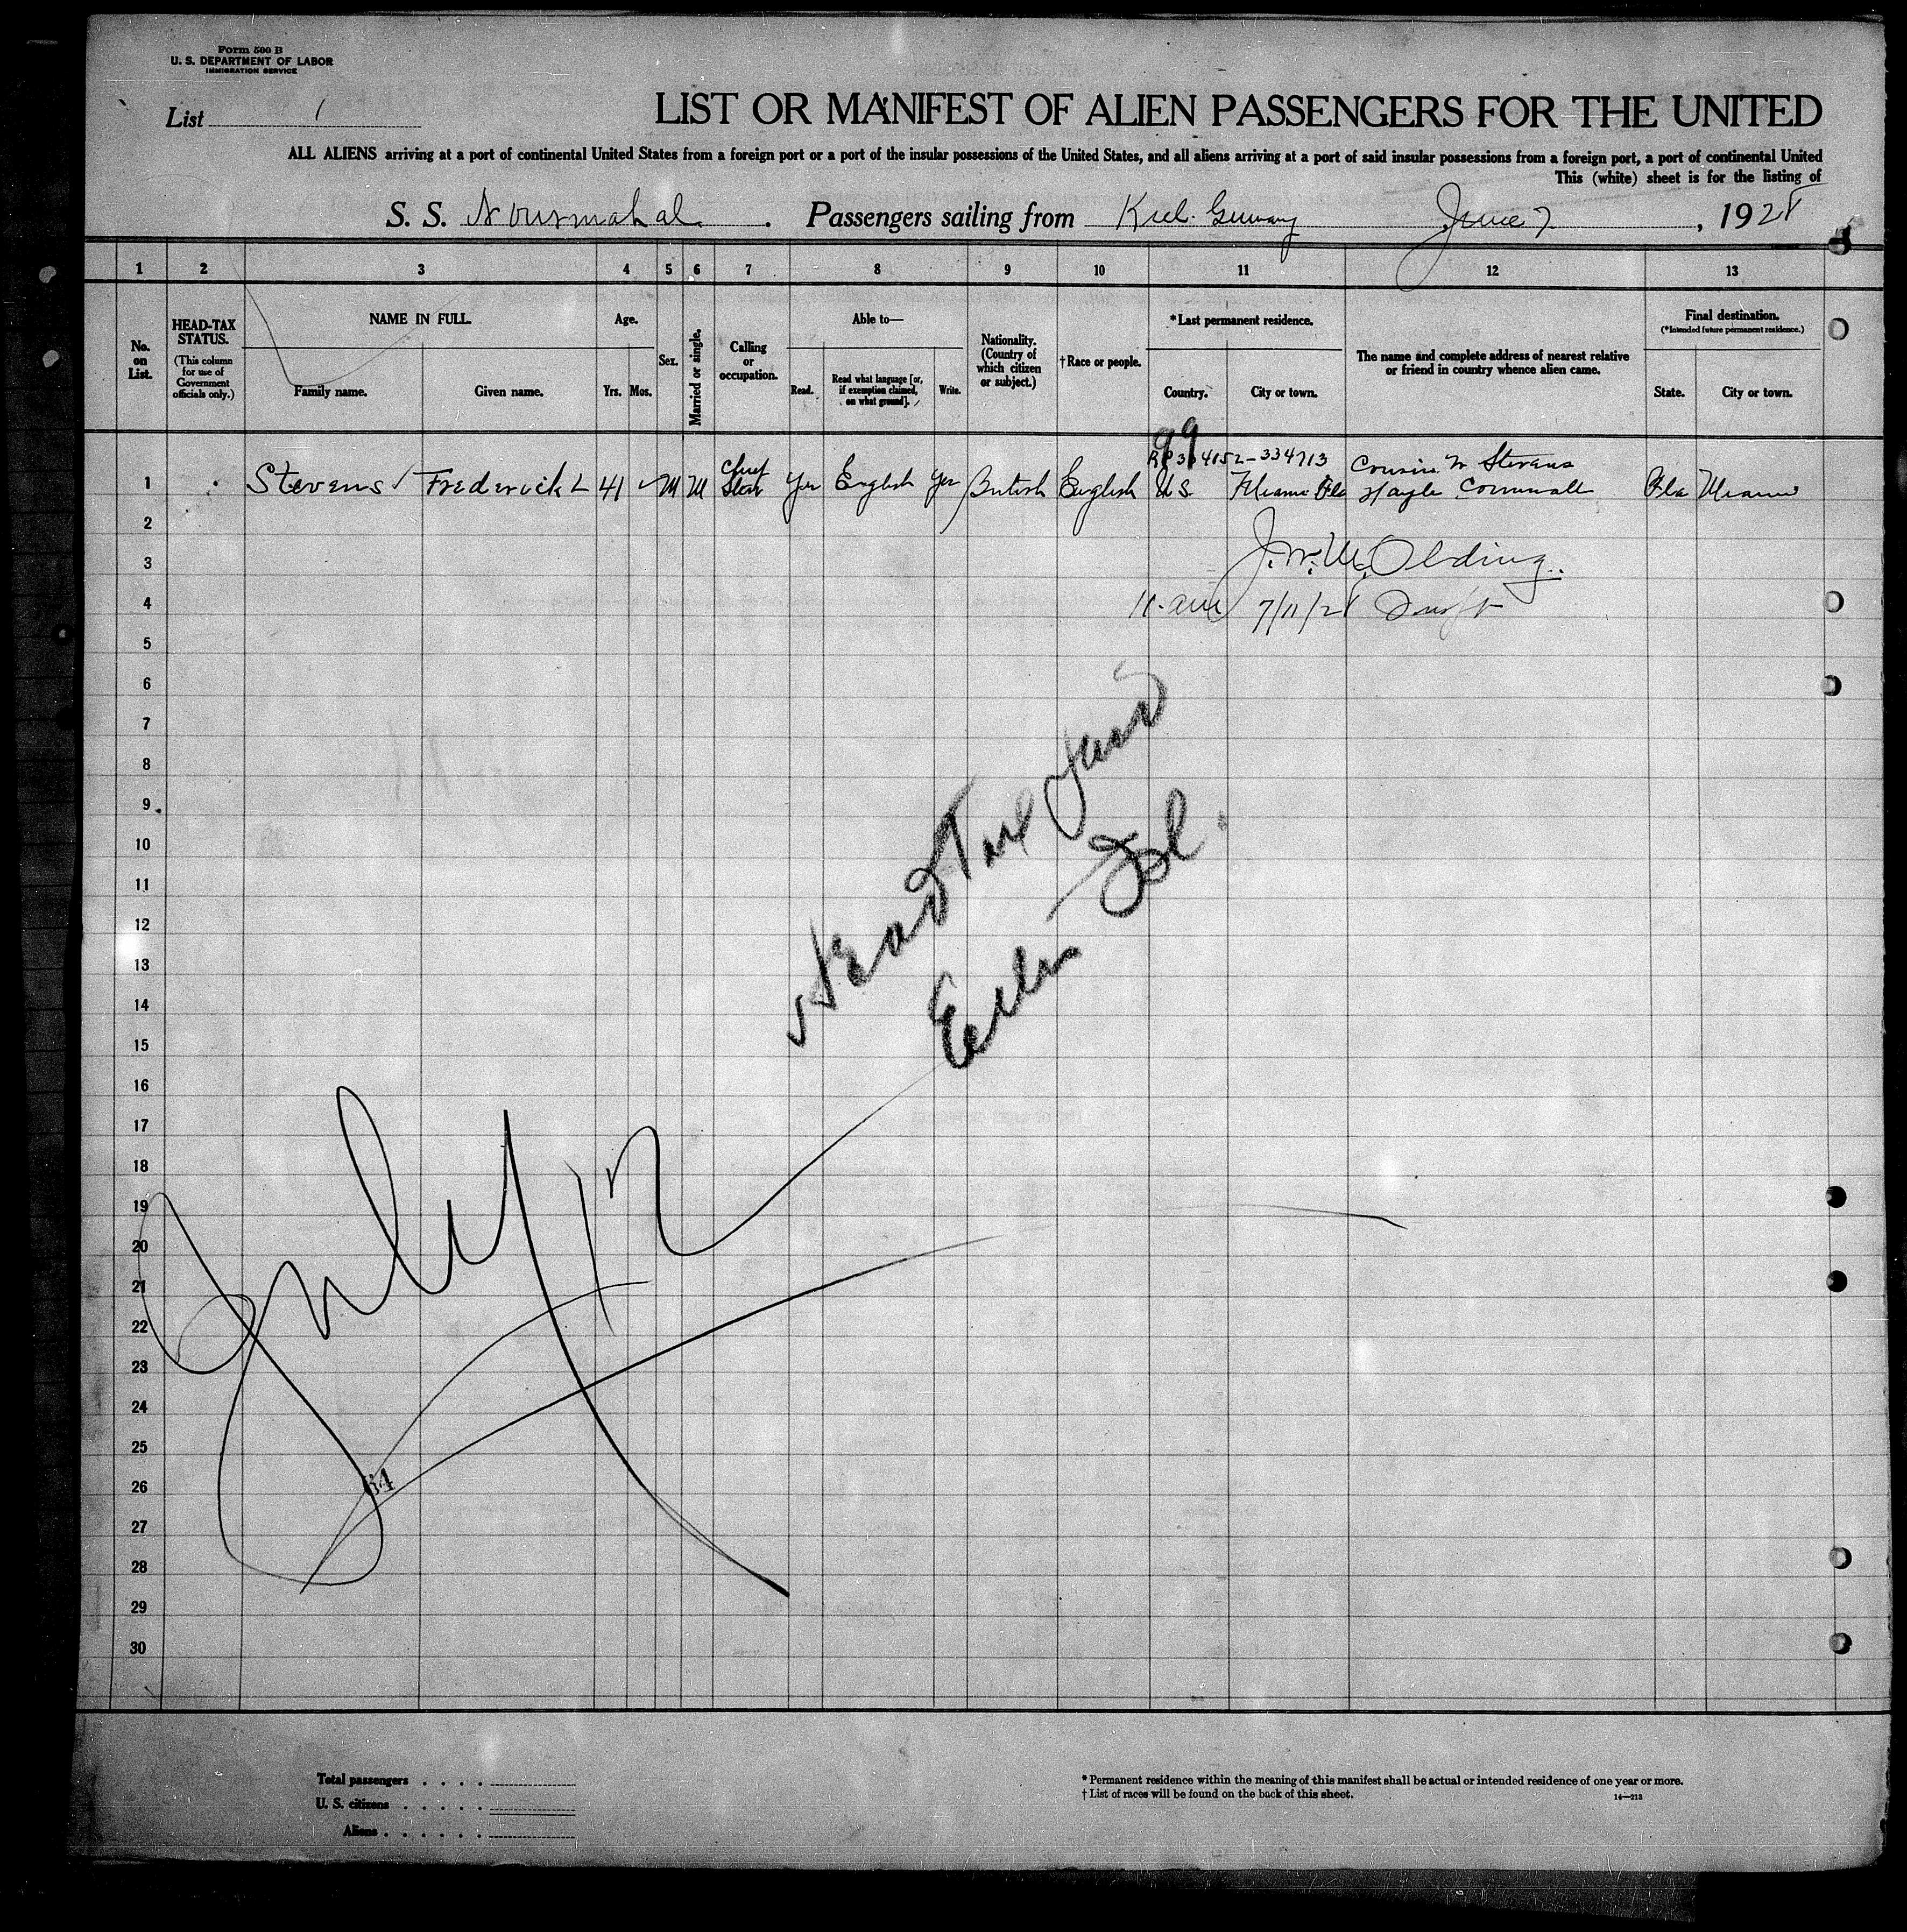 Form 500 B
U. S. DEPARTMENT OF LABOR
IMMIGRATION SERVICE
List 1
LIST OR MANIFEST OF ALIEN PASSENGERS FOR THE UNITED
ALL ALIENS arriving at a port of continental United States from a foreign port or a port of the insular possessions of the United States, and all aliens arriving at a port of said insular possessions from a foreign port, a port of continental United
This (white) sheet is for the listing of
S. S. Nourmahal. Passengers sailing from Kiel. Germany June 7, 1928
1 2 3 4 5 6 7 8 9 10 11 12 13
No. on List.
HEAD-TAX STATUS.
(This column for use of Government officials only.)
NAME IN FULL.
Family name. Given name.
Age.
Yrs. Mos.
Sex.
Married or single.
Calling or occupation.
Able to—
Read. Read what language [or, if exemption claimed, on what ground]. Write.
Nationality. (Country of which citizen or subject.)
† Race or people.
* Last permanent residence.
Country. City or town.
The name and complete address of nearest relative or friend in country whence alien came.
Final destination.
(* Intended future permanent residence.)
State. City or town.
99
RP334152-334713
1 Stevens Frederick L 41 M M Chief Stew Yes English Yes British English U S Miami Fla Cousin W Stevens Hayle Cornwall Fla Miami
2
3 J. W. M. Olding.
4 11 am 7/11/28
5
6
7
8
9
10
11
12
13
14
15
Head Tax
16
17
18
19
20
21
22
23
24
25
26
27
28
29
30
July 12
64
Total passengers
U. S. citizens
Aliens
* Permanent residence within the meaning of this manifest shall be actual or intended residence of one year or more.
† List of races will be found on the back of this sheet.
14—213